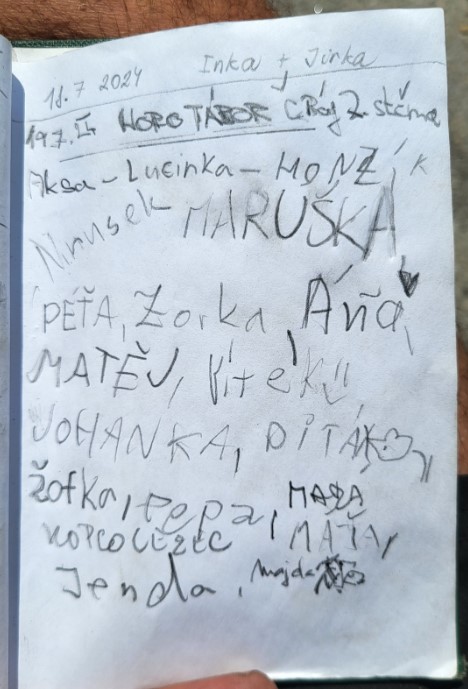 18.7 2024 Inka + Jirka
19.7. II. HOROTÁBOR Č. Ráj 2. stěma
Aksa - Lucinka - HONZÍK
Nrusek MARUŠKA
PÉŤA, Zorka, Áňa,
MATĚJ, Vítek,
JOHANKA, DÍŤÁK
Žofka, Pepa, MÁŤA
HOROLEZEC MÁŤA,
Jenda, Majda